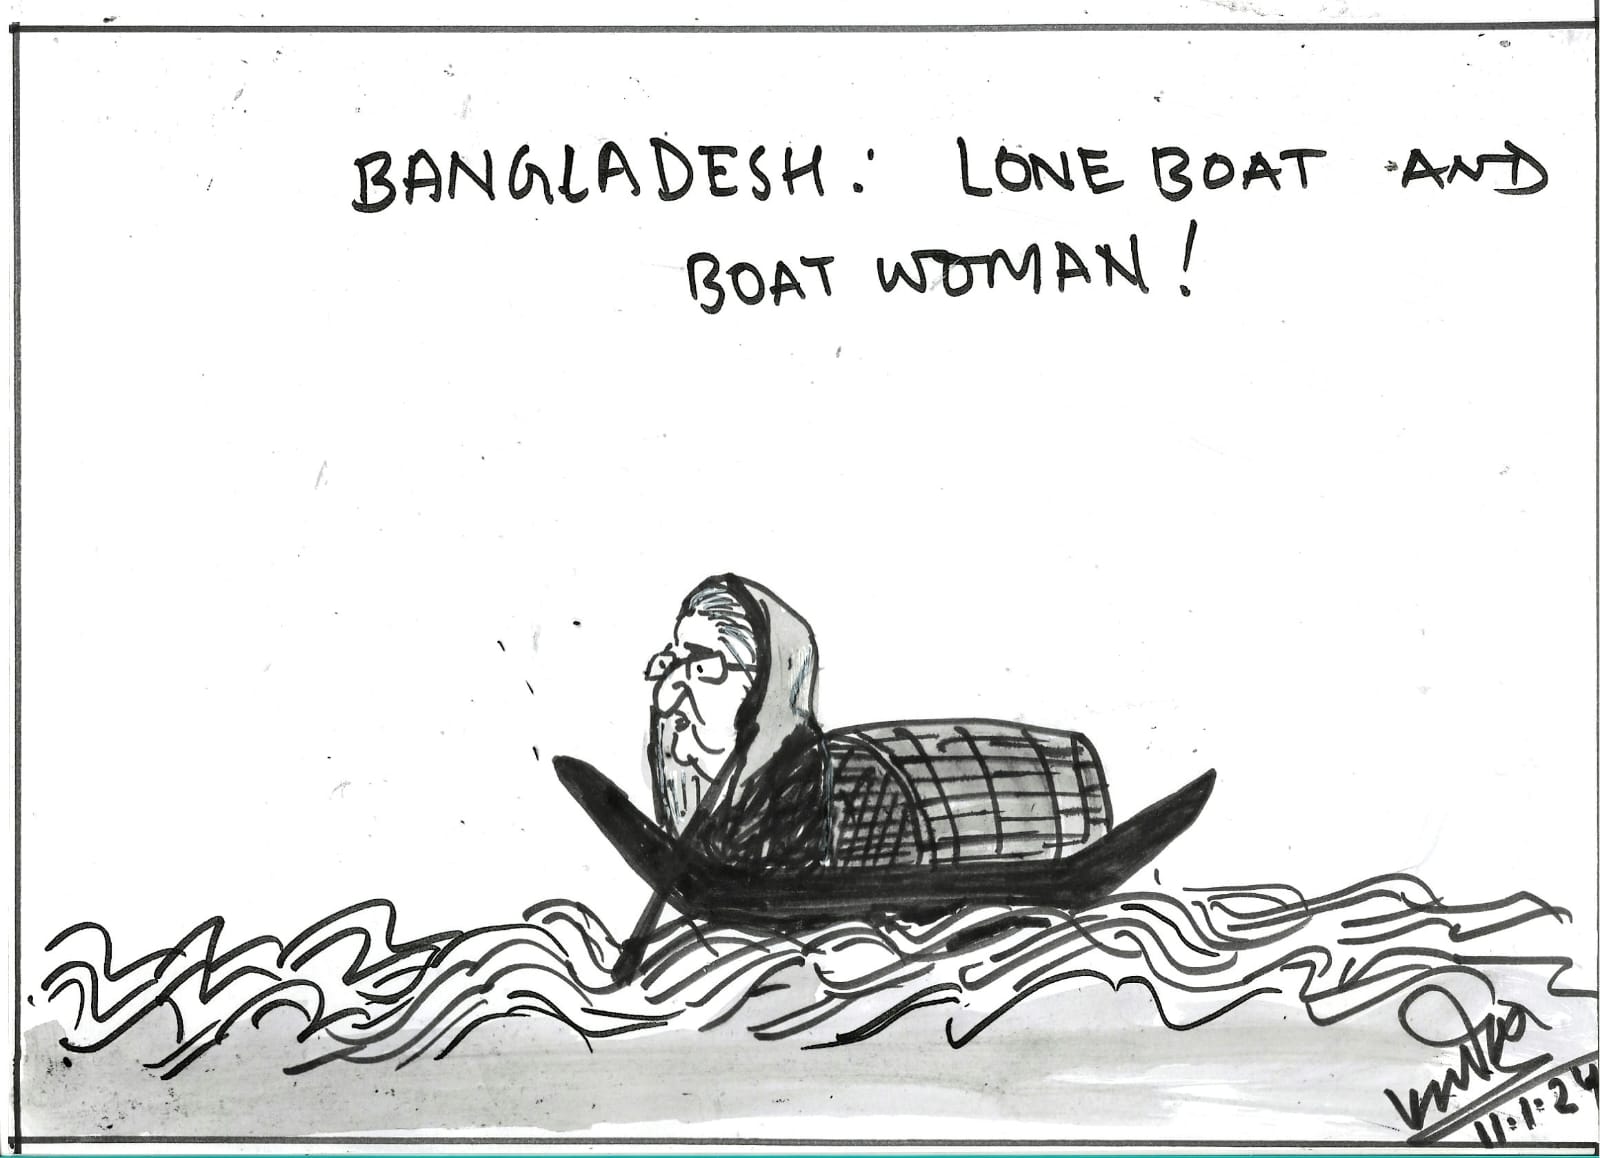 BANGLADESH: LONE BOAT AND
BOAT WOMAN!
11.1.24